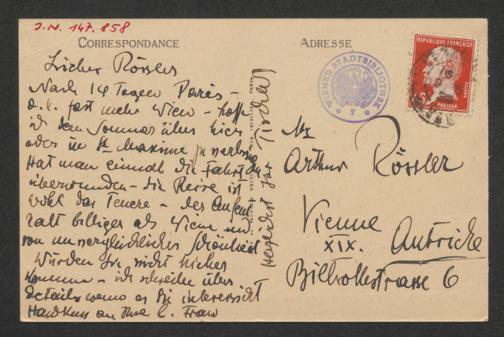 J.N. 147.858
CORRESPONDANCE
ADRESSE
REPUBLIQUE FRANÇAISE
PASTEUR
WIENER STADTBIBLIOTHEK
Lieber Rössler
Nach 14 Tagen Paris –
fast mehr Wien – hoffe
ich den Sommer über hier
oder in St. Maxime zu verbring
Hat man einmal die Fahrt
überwunden – die Reise ist
wohl das Teuere – der Aufent
halt billiger als Wien und
von unvergleichlicher Schönheit
Würden Sie nicht hieher
kommen – ich schreibe über
Details wenn es Sie interessirt
Handkuss an Ihre l. Frau
Herzlichst Ihr
Mr
Arthur Rössler
Vienne
XIX. Autriche
Billrothstrasse 6